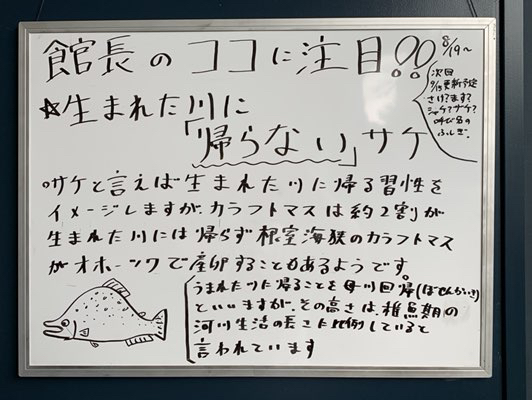 館長のココに注目!!
8/19〜
次回
9/15更新予定
さけ?ます?
シャケ?サケ?
呼び名の
ふしぎ。
☆生まれた川に
「帰らない」サケ
サケと言えば生まれた川に帰る習性を
イメージしますが、カラフトマスは約2割が
生まれた川には帰らず根室海狭のカラフトマス
がオホーツクで産卵することもあるようです。
うまれた川に帰ることを母川回帰(ぼせんかいき)
といいますが、その高さは、稚魚期の
河川生活の長さに比例していると
言われています